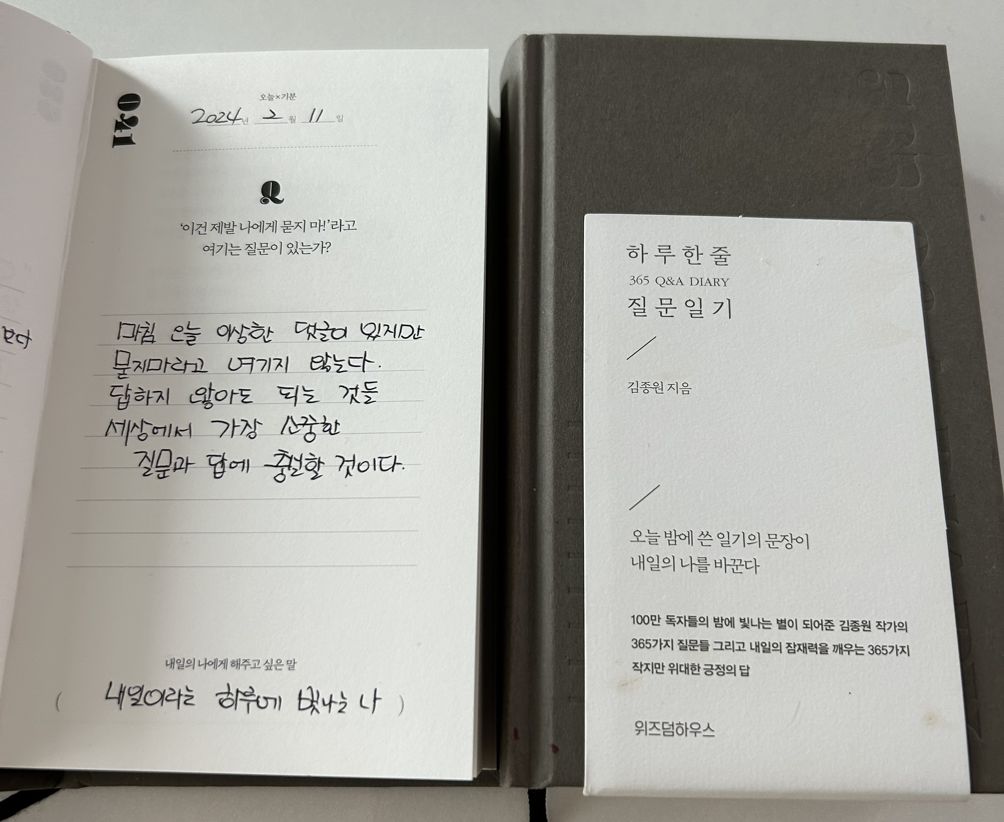 021
오늘×기분
2024년 2월 11일
Q
'이건 제발 나에게 묻지 마!'라고
여기는 질문이 있는가?
마침 오늘 이상한 댓글이 있지만
묻지마라고 여기지 않는다.
답하지 않아도 되는 것들
세상에서 가장 소중한
질문과 답에 충실할 것이다.
내일의 나에게 해주고 싶은 말
( 내일이라는 하루에 빛나는 나 )
하루 한 줄
365 Q&A DIARY
질문일기
김종원 지음
오늘 밤에 쓴 일기의 문장이
내일의 나를 바꾼다
100만 독자들의 밤에 빛나는 별이 되어준 김종원 작가의
365가지 질문들 그리고 내일의 잠재력을 깨우는 365가지
작지만 위대한 긍정의 답
위즈덤하우스